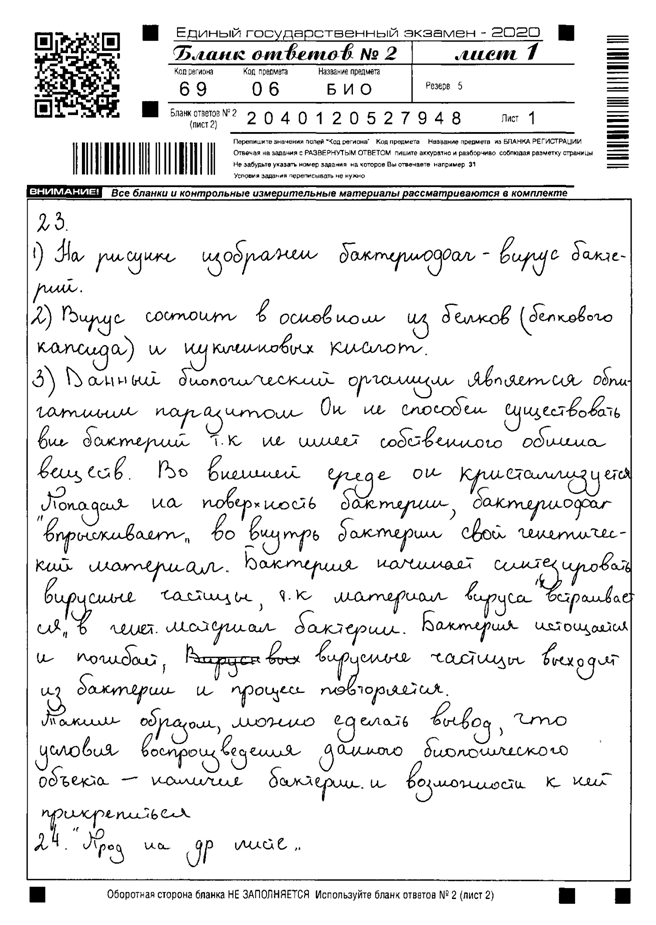 Единый государственный экзамен - 2020
Бланк ответов № 2 лист 1
Код региона Код предмета Название предмета
69 06 БИО Резерв 5
Бланк ответов № 2 (лист 2) 2040120527948 Лист 1
Перепишите значения полей "Код региона" Код предмета Название предмета из БЛАНКА РЕГИСТРАЦИИ
Отвечая на задания с РАЗВЕРНУТЫМ ОТВЕТОМ пишите аккуратно и разборчиво соблюдая разметку страницы
Не забудьте указать номер задания на которое Вы отвечаете например 31
Условия задания переписывать не нужно
ВНИМАНИЕ! Все бланки и контрольные измерительные материалы рассматриваются в комплекте
23.
1) На рисунке изображен бактериофаг - вирус бакте-
рий.
2) Вирус состоит в основном из белков (белкового
капсида) и нуклеиновых кислот.
3) Данный биологический организм является обли-
гатным паразитом Он не способен существовать
вне бактерий т.к не имеет собственного обмена
веществ. Во внешней среде он кристаллизуется
Попадая на поверхность бактерии, бактериофаг
"впрыскивает„ во внутрь бактерии свой генетичес-
кий материал. Бактерия начинает синтезировать
вирусные частицы, т.к материал вируса "встраивает
ся„ в генет. материал бактерии. Бактерия истощается
и погибает, Вирусн вых вирусные частицы выходят
из бактерии и процесс повторяется.
Таким образом, можно сделать вывод, что
условия воспроизведения данного биологического
объекта — наличие бактерии и возможности к ней
прикрепиться
24. "Прод на др листе„
Оборотная сторона бланка НЕ ЗАПОЛНЯЕТСЯ Используйте бланк ответов № 2 (лист 2)